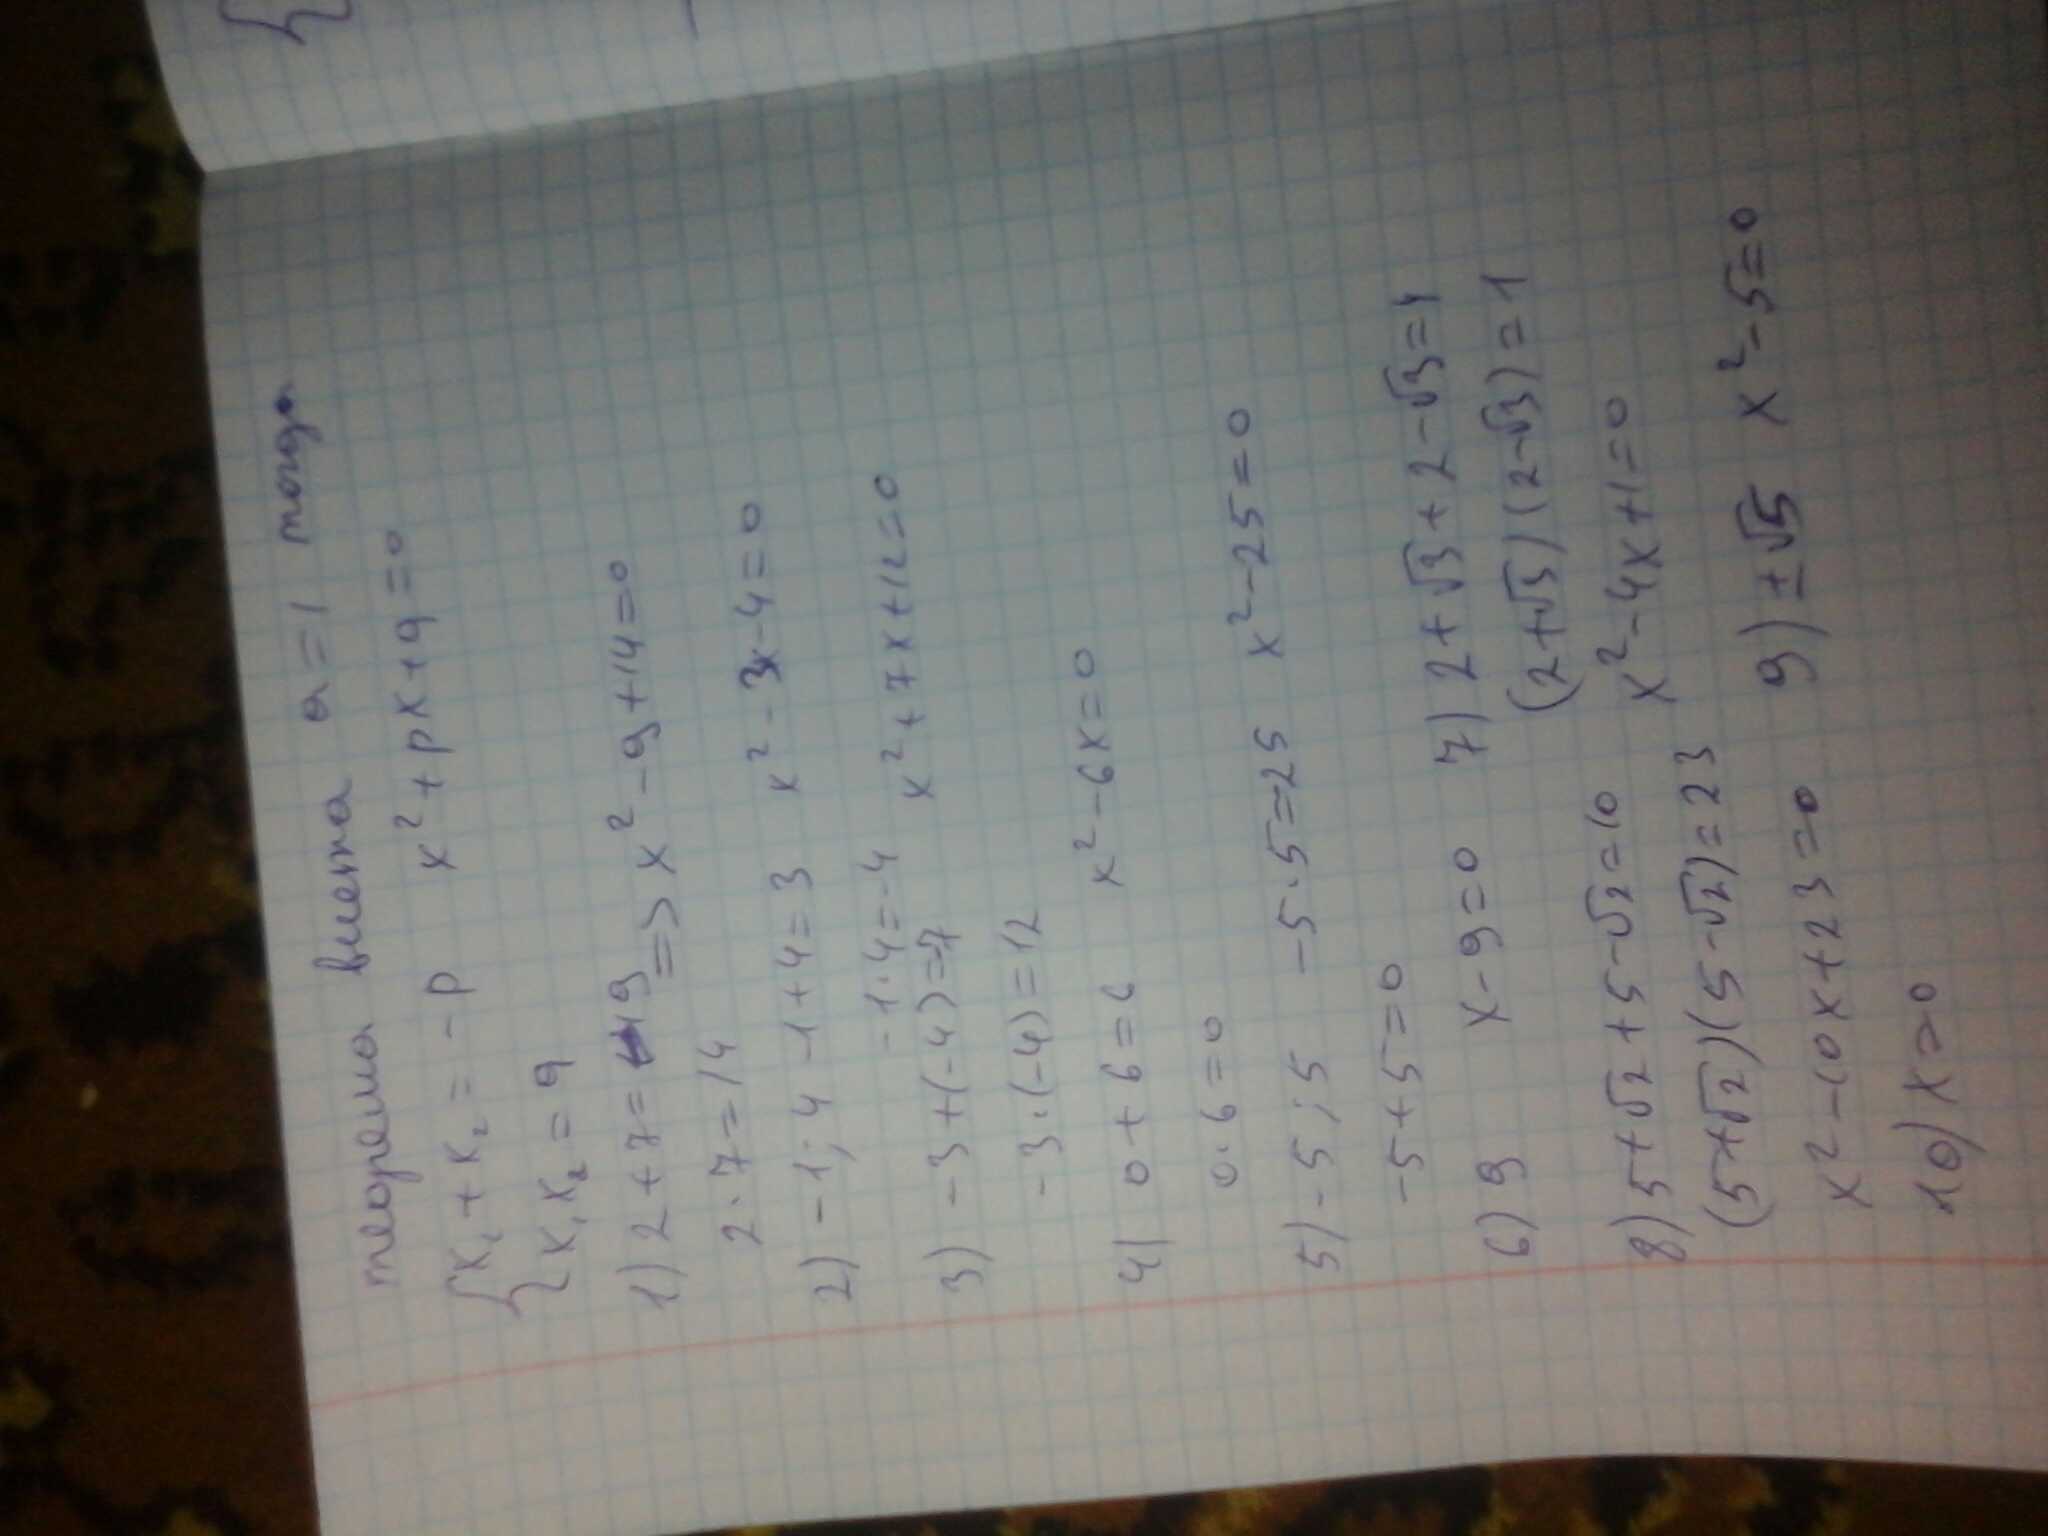 теорема виета a=1 тогда
x₁+x₂=-p x²+px+q=0
x₁x₂=q
1) 2+7=9 => x²-9+14=0
2·7=14
2) -1; 4 -1+4=3 x²-3x-4=0
-1·4=-4
3) -3+(-4)=-7 x²+7x+12=0
-3·(-4)=12
4) 0+6=6 x²-6x=0
0·6=0
5) -5; 5 -5·5=25 x²-25=0
-5+5=0
6) 9 x-9=0 7) 2+√3+2-√3=4
(2+√3)(2-√3)=1
8) 5+√2+5-√2=10 x²-4x+1=0
(5+√2)(5-√2)=23
x²-10x+23=0 9) ±√5 x²-5=0
10) x=0